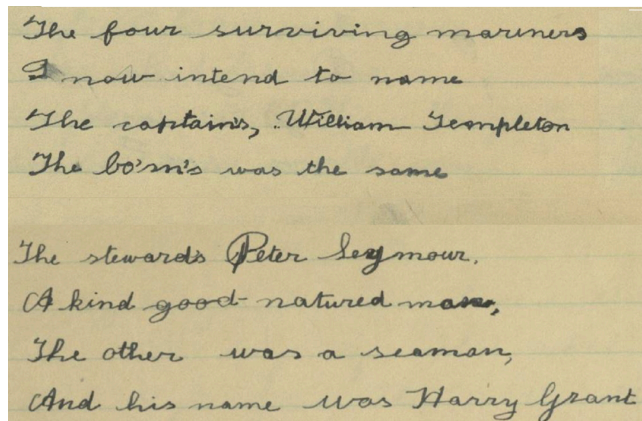 The four surviving mariners
I now intend to name
The captain's, William Templeton
The bo'sn's was the same
The steward's Peter Seymour,
A kind good-natured man,
The other was a seaman,
And his name was Harry Grant